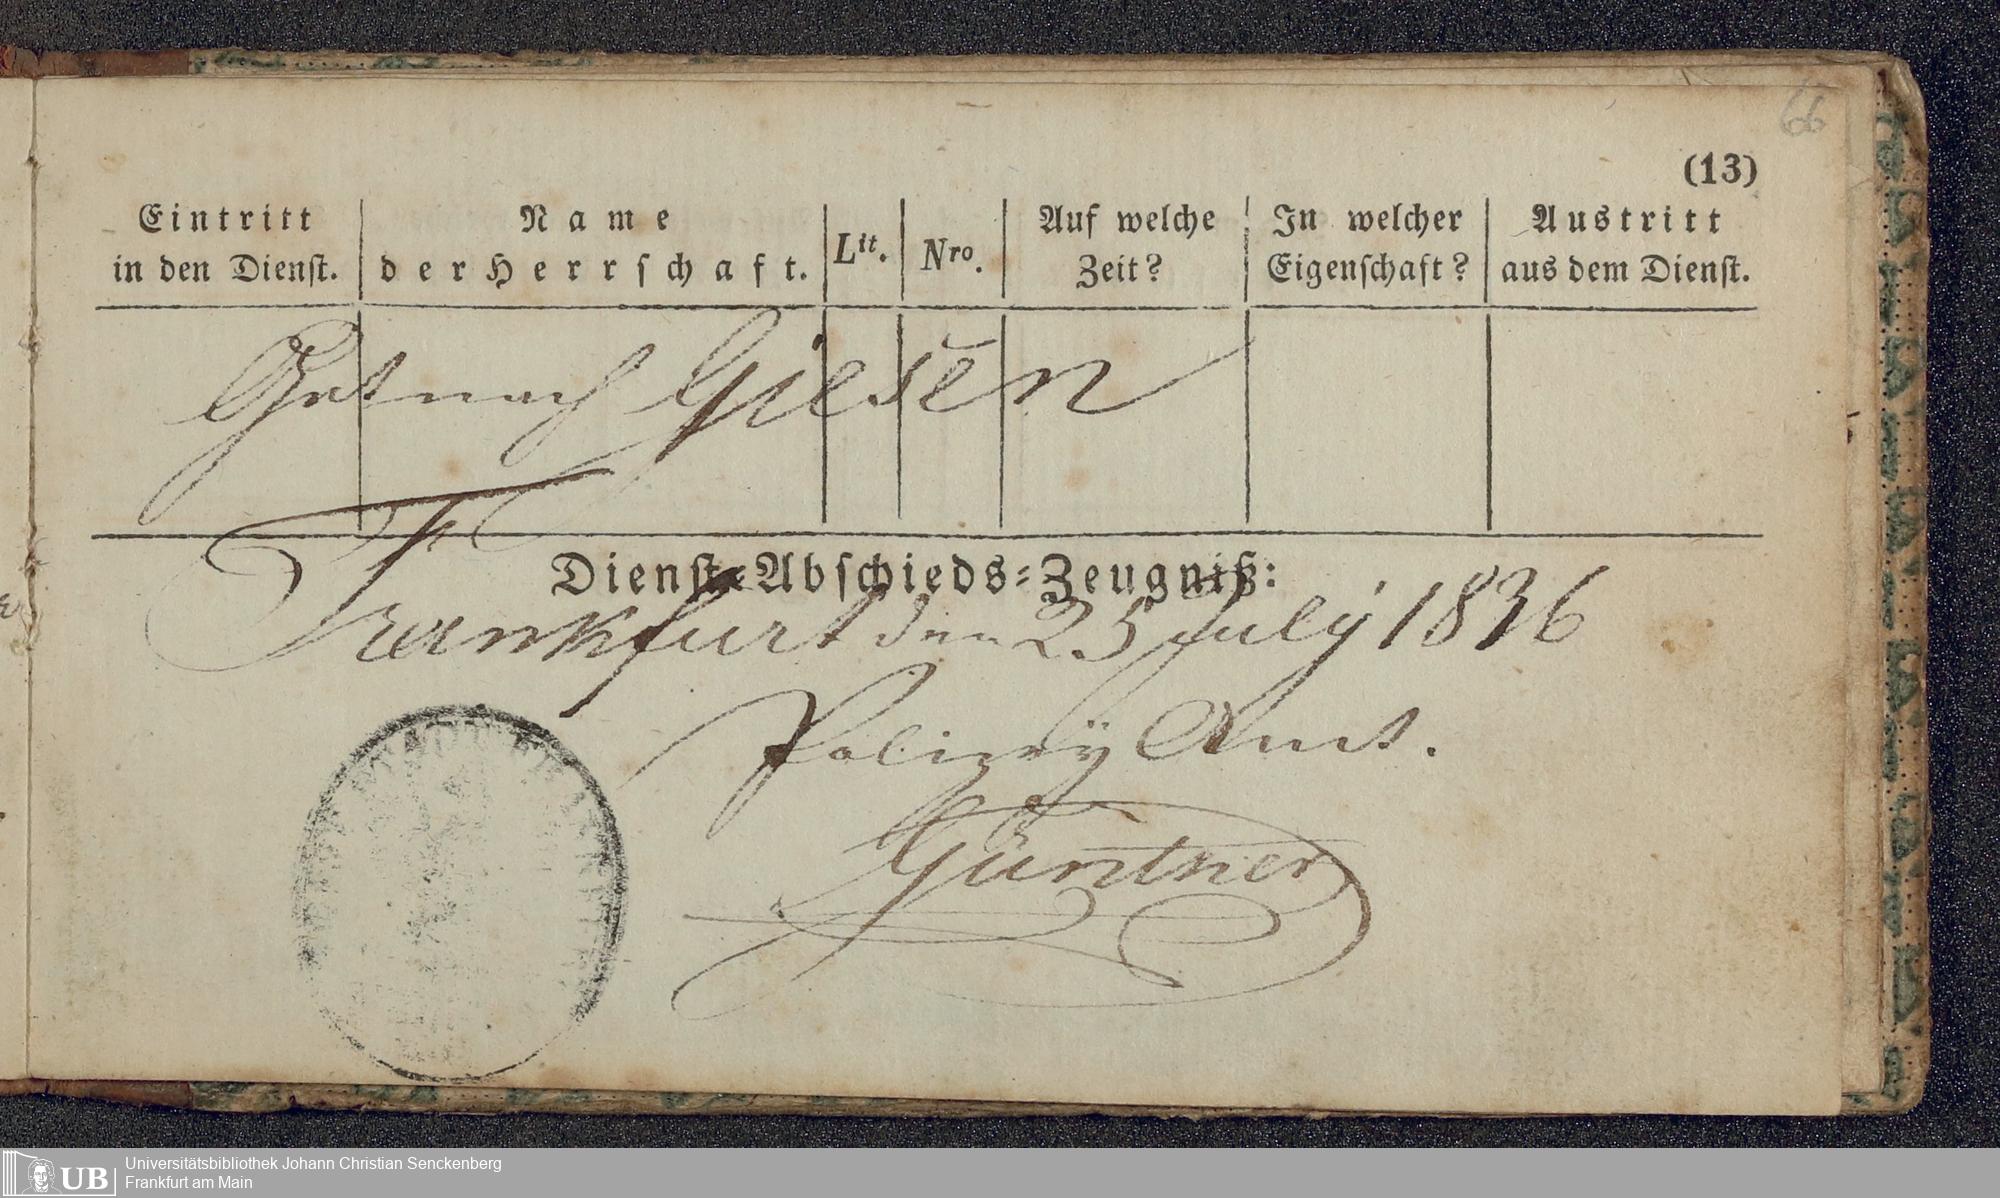 66
(13)
Eintritt in den Dienst.
Name der Herrschaft.
Lit.
Nro.
Auf welche Zeit?
In welcher Eigenschaft?
Austritt aus dem Dienst.
Gut nach Giesen
Dienst-Abschieds-Zeugniß:
Frankfurt den 25 July 1836
Polizey Amt.
Güntner
UB
Universitätsbibliothek Johann Christian Senckenberg
Frankfurt am Main